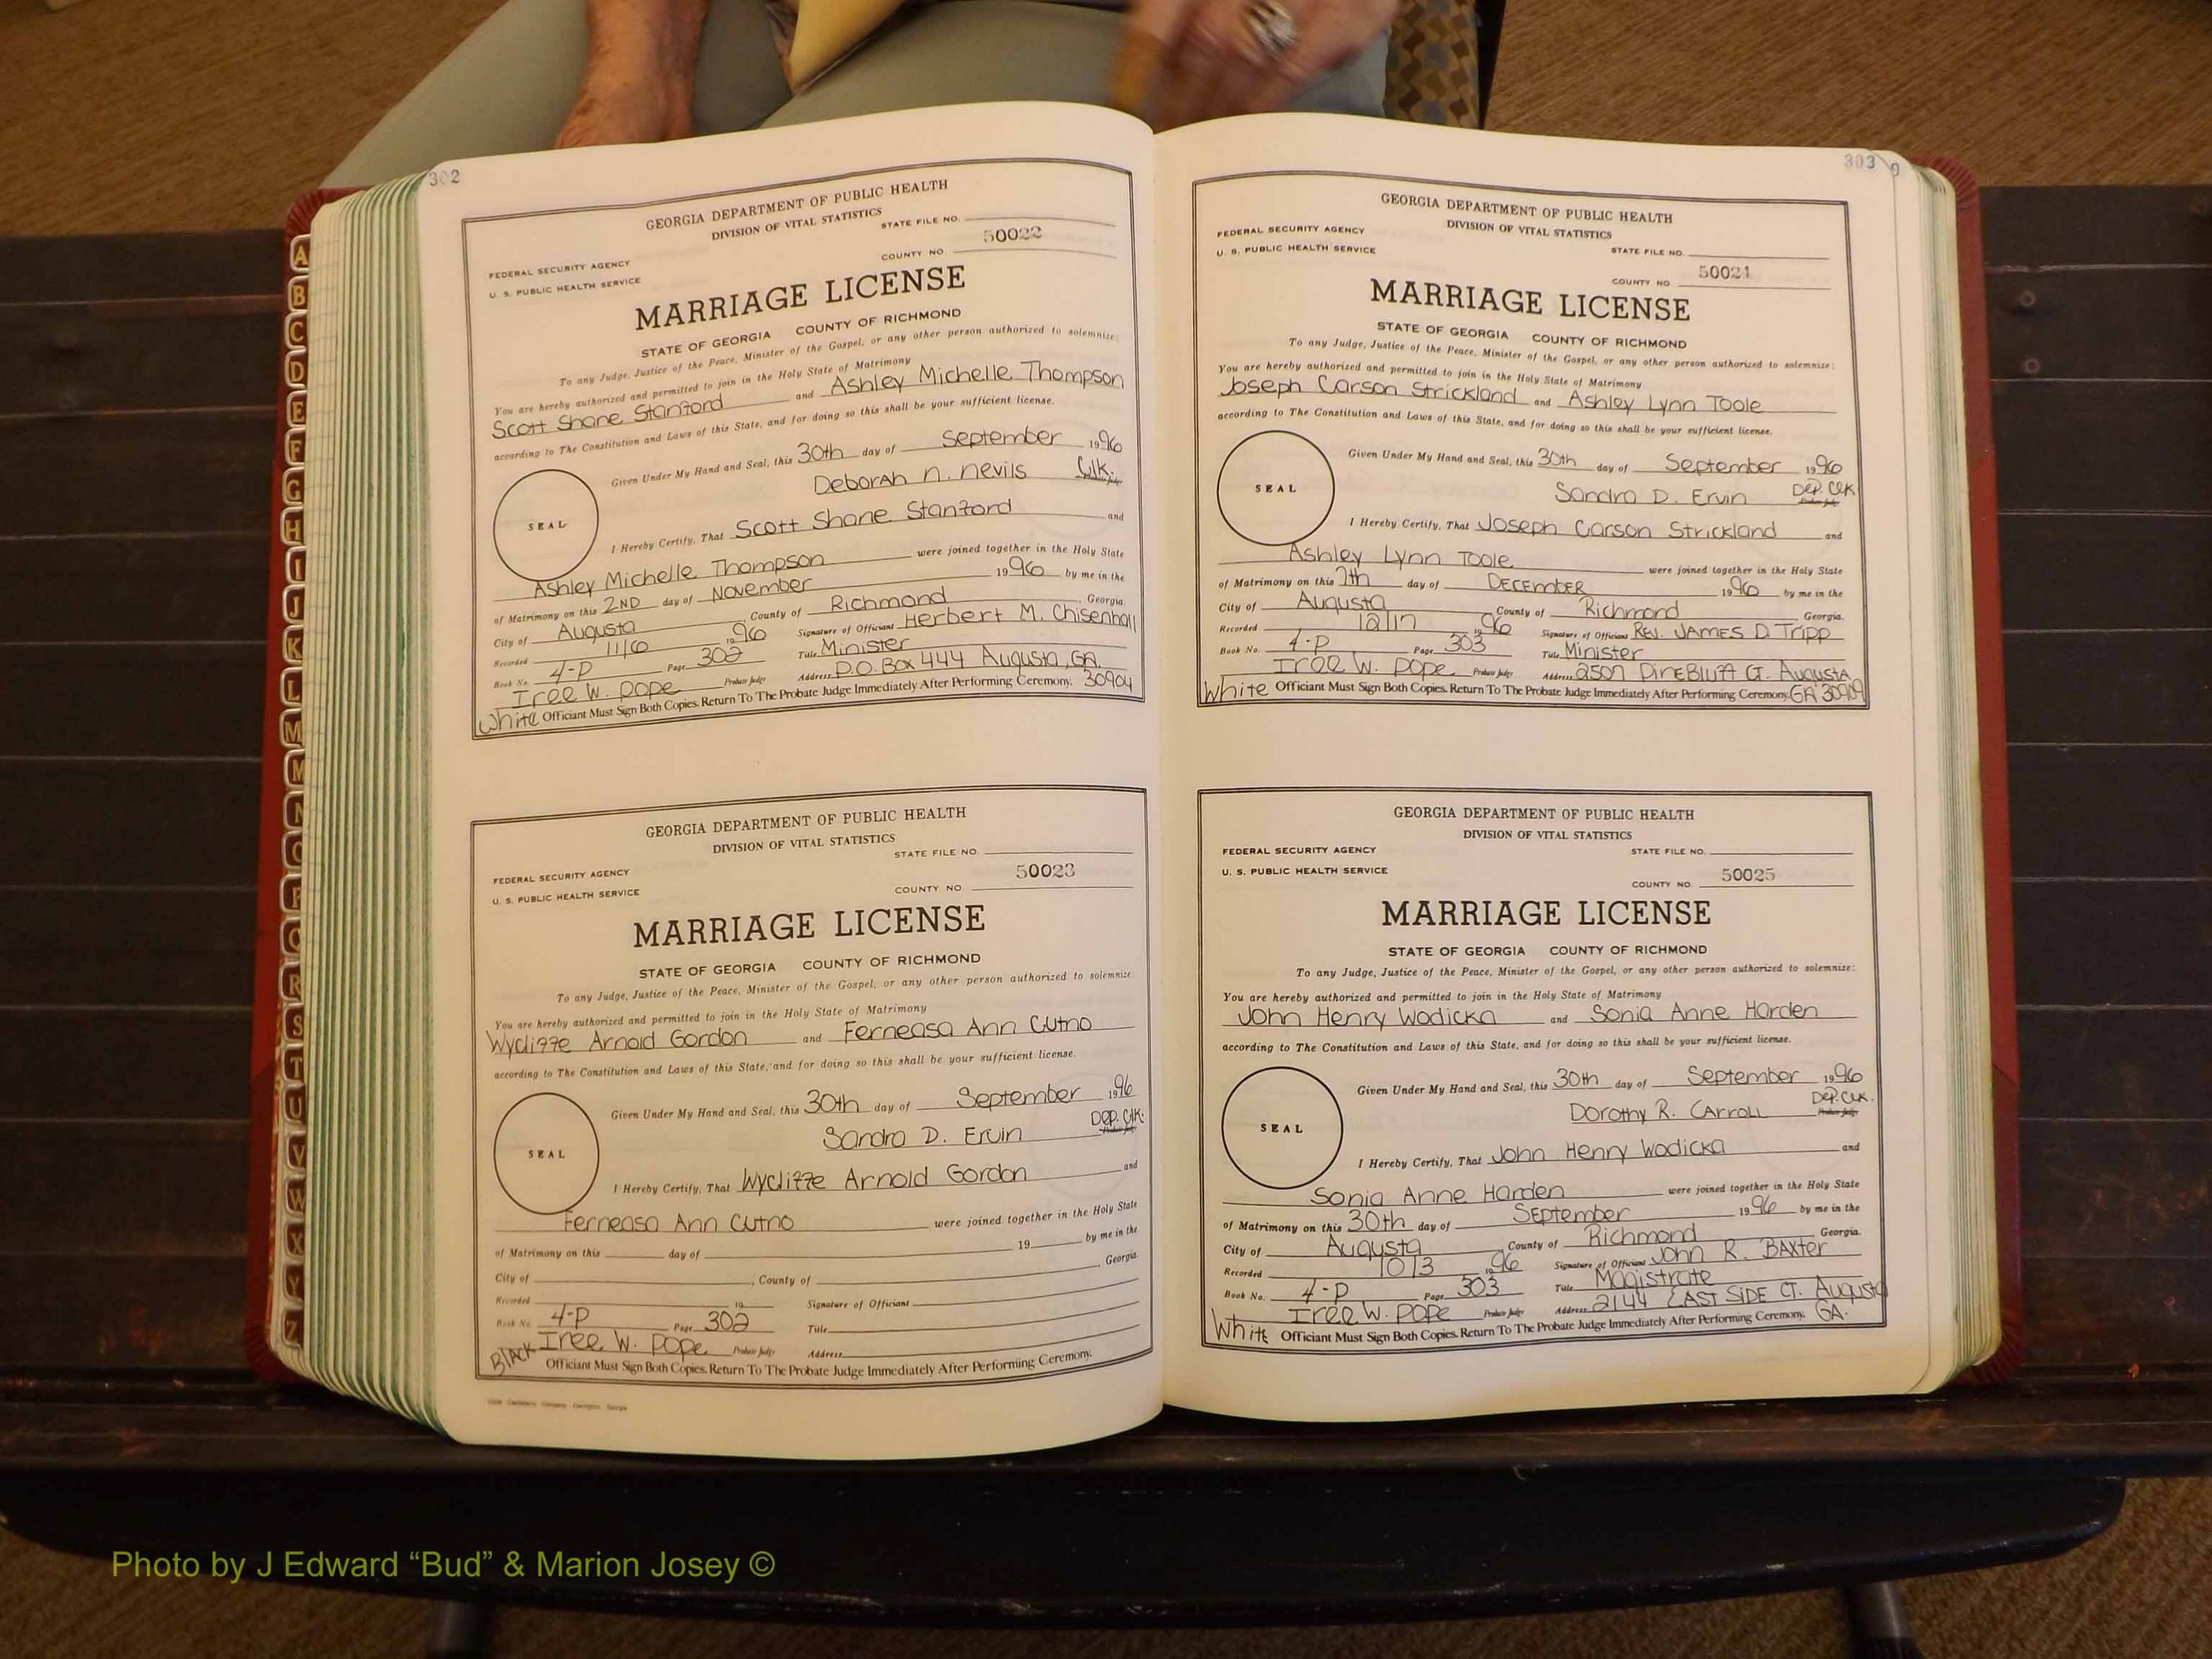 302
GEORGIA DEPARTMENT OF PUBLIC HEALTH
DIVISION OF VITAL STATISTICS
STATE FILE NO.
FEDERAL SECURITY AGENCY
50022
U. S. PUBLIC HEALTH SERVICE
COUNTY NO
MARRIAGE LICENSE
STATE OF GEORGIA COUNTY OF RICHMOND
To any Judge, Justice of the Peace, Minister of the Gospel, or any other person authorized to solemnize:
You are hereby authorized and permitted to join in the Holy State of Matrimony
Scott Shane Stanford and Ashley Michelle Thompson
according to The Constitution and Laws of this State, and for doing so this shall be your sufficient license.
Given Under My Hand and Seal, this 30th day of September 1996
Deborah N. Nevils Clk.
SEAL
I Hereby Certify, That Scott Shane Stanford and
Ashley Michelle Thompson were joined together in the Holy State
of Matrimony on this 2ND day of November 1996 by me in the
City of Augusta County of Richmond, Georgia.
Recorded 11/6 1996 Signature of Officiant Herbert M. Chisenhall
Book No. 4-P Page 302 Title Minister
Iree W. Pope Probate Judge Address P.O. Box 444 Augusta, GA. 30904
White Officiant Must Sign Both Copies. Return To The Probate Judge Immediately After Performing Ceremony.
GEORGIA DEPARTMENT OF PUBLIC HEALTH
DIVISION OF VITAL STATISTICS
STATE FILE NO.
FEDERAL SECURITY AGENCY
50023
U. S. PUBLIC HEALTH SERVICE
COUNTY NO.
MARRIAGE LICENSE
STATE OF GEORGIA COUNTY OF RICHMOND
To any Judge, Justice of the Peace, Minister of the Gospel, or any other person authorized to solemnize:
You are hereby authorized and permitted to join in the Holy State of Matrimony
Wycliffe Arnold Gordon and Ferneasa Ann Cutno
according to The Constitution and Laws of this State, and for doing so this shall be your sufficient license.
Given Under My Hand and Seal, this 30th day of September 1996
Sandra D. Ervin Dep. Clk.
SEAL
I Hereby Certify, That Wycliffe Arnold Gordon and
Ferneasa Ann Cutno were joined together in the Holy State
of Matrimony on this day of 19 by me in the
City of , County of , Georgia.
Recorded 19 Signature of Officiant
Book No. 4-P Page 302 Title
Iree W. Pope Probate Judge Address
BlACK Officiant Must Sign Both Copies. Return To The Probate Judge Immediately After Performing Ceremony.
303
GEORGIA DEPARTMENT OF PUBLIC HEALTH
DIVISION OF VITAL STATISTICS
FEDERAL SECURITY AGENCY
STATE FILE NO.
U. S. PUBLIC HEALTH SERVICE
50024
COUNTY NO
MARRIAGE LICENSE
STATE OF GEORGIA COUNTY OF RICHMOND
To any Judge, Justice of the Peace, Minister of the Gospel, or any other person authorized to solemnize:
You are hereby authorized and permitted to join in the Holy State of Matrimony
Joseph Carson Strickland and Ashley Lynn Toole
according to The Constitution and Laws of this State, and for doing so this shall be your sufficient license.
Given Under My Hand and Seal, this 30th day of September 1996
Sandra D. Ervin Dep. Clk
SEAL
I Hereby Certify, That Joseph Carson Strickland and
Ashley Lynn Toole were joined together in the Holy State
of Matrimony on this 7th day of DECEMBER 1996 by me in the
City of Augusta County of Richmond Georgia.
Recorded 12/17 1996 Signature of Officiant Rev. JAMES D. Tripp
Book No. 4-P Page 303 Title Minister
Iree W. Pope Probate Judge Address 2507 PineBluff Ct. Augusta
White Officiant Must Sign Both Copies. Return To The Probate Judge Immediately After Performing Ceremony. GA 30909
GEORGIA DEPARTMENT OF PUBLIC HEALTH
DIVISION OF VITAL STATISTICS
FEDERAL SECURITY AGENCY
STATE FILE NO.
U. S. PUBLIC HEALTH SERVICE
50025
COUNTY NO.
MARRIAGE LICENSE
STATE OF GEORGIA COUNTY OF RICHMOND
To any Judge, Justice of the Peace, Minister of the Gospel, or any other person authorized to solemnize:
You are hereby authorized and permitted to join in the Holy State of Matrimony
John Henry Wodicka and Sonia Anne Harden
according to The Constitution and Laws of this State, and for doing so this shall be your sufficient license.
Given Under My Hand and Seal, this 30th day of September 1996
Dorothy R. Carroll Dep. Clk.
SEAL
I Hereby Certify, That John Henry Wodicka and
Sonia Anne Harden were joined together in the Holy State
of Matrimony on this 30th day of September 1996 by me in the
City of Augusta County of Richmond Georgia.
Recorded 10/3 1996 Signature of Officiant John R. BAxter
Book No. 4-P Page 303 Title Magistrate
Iree W. Pope Probate Judge Address 2144 EAST SIDE CT. Augusta
White Officiant Must Sign Both Copies. Return To The Probate Judge Immediately After Performing Ceremony. GA.
A
B
C
D
E
F
G
H
I
J
K
L
M
N
O
P
Q
R
S
T
U
V
W
X
Y
Z
Photo by J Edward “Bud” & Marion Josey ©